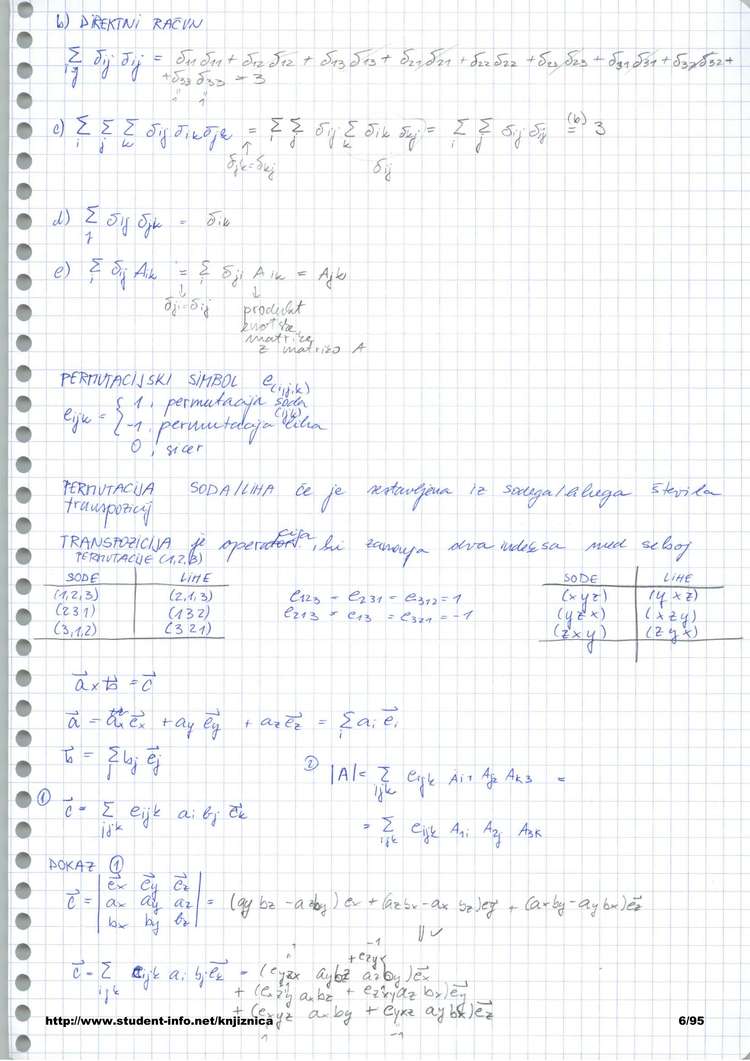 b) DIREKTNI RAČUN
∑ij δij δij = δ11 δ11 + δ12 δ12 + δ13 δ13 + δ21 δ21 + δ22 δ22 + δ23 δ23 + δ31 δ31 + δ32 δ32 +
+ δ33 δ33 = 3
1 1
c) ∑i ∑j ∑k δij δik δjk = ∑i ∑j δij ∑k δik δkj = ∑i ∑j δij δij (b)= 3
δjk = δkj δij
d) ∑j δij δjk = δik
e) ∑i δij Aik = ∑i δji Aik = Ajk
δji = δij produkt
matrike
z matriko A
PERMUTACIJSKI SIMBOL e(i,j,k)
eijk = { 1, permutacija soda
(ijk)
-1, permutacija liha
0, sicer
PERMUTACIJA SODA/LIHA če je sestavljena iz sodega/lihega števila
transpozicij
TRANSPOZICIJA je operacija, ki zamenja dva indeksa med seboj
PERMUTACIJE (1,2,3)
SODE LIHE SODE LIHE
(1,2,3) (2,1,3) e123 = e231 = e312 = 1 (xyz) (yxz)
(231) (132) e213 = e13 = e321 = -1 (yzx) (xzy)
(3,1,2) (321) (zxy) (zyx)
a⃗ x b⃗ = c⃗
a⃗ = ax e⃗x + ay e⃗y + az e⃗z = ∑i ai e⃗i
b⃗ = ∑j bj e⃗j
② |A| = ∑ijk eijk Ai1 Aj2 Ak3 =
① c⃗ = ∑ijk eijk ai bj e⃗k
= ∑ijk eijk A1i A2j A3k
DOKAZ ①
e⃗x e⃗y e⃗z
c⃗ = | ax ay az | = (ay bz - az by) ex + (az bx - ax bz) e⃗y + (ax by - ay bx) e⃗z
bx by bz
|| ✓
1 -1
c⃗ = ∑ijk eijk ai bj e⃗k = (eyzx ay bz + ezyx az by) e⃗x
+ (exzy ax bz + ezxy az bx) e⃗y
+ (exyz ax by + eyxz ay bx) e⃗z
1 -1
http://www.student-info.net/knjiznica 6/95